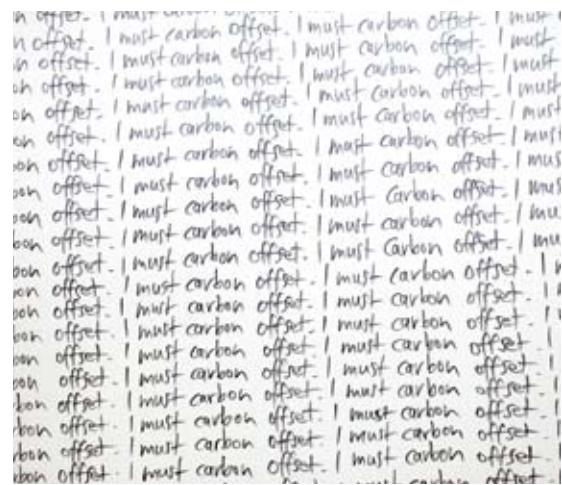 n offset. I must carbon offset. I must carbon offset. I must
n offset. I must carbon offset. I must carbon offset. I must
n offset. I must carbon offset. I must carbon offset. I must
on offset. I must carbon offset. I must carbon offset. I must
on offset. I must carbon offset. I must carbon offset. I must
on offset. I must carbon offset. I must carbon offset. I must
bon offset. I must carbon offset. I must carbon offset. I must
bon offset. I must carbon offset. I must carbon offset. I mus
bon offset. I must carbon offset. I must carbon offset. I mus
bon offset. I must carbon offset. I must carbon offset. I mu
bon offset. I must carbon offset. I must carbon offset. I mu
on offset. I must carbon offset. I must carbon offset. I
bon offset. I must carbon offset. I must carbon offset. I
bon offset. I must carbon offset. I must carbon offset. I
bon offset. I must carbon offset. I must carbon offset. I
bon offset. I must carbon offset. I must carbon offset. I
bon offset. I must carbon offset. I must carbon offset. I
rbon offset. I must carbon offset. I must carbon offset. I
rbon offset. I must carbon offset. I must carbon offset. I
rbon offset. I must carbon offset. I must carbon offset. I
must carbon offset.